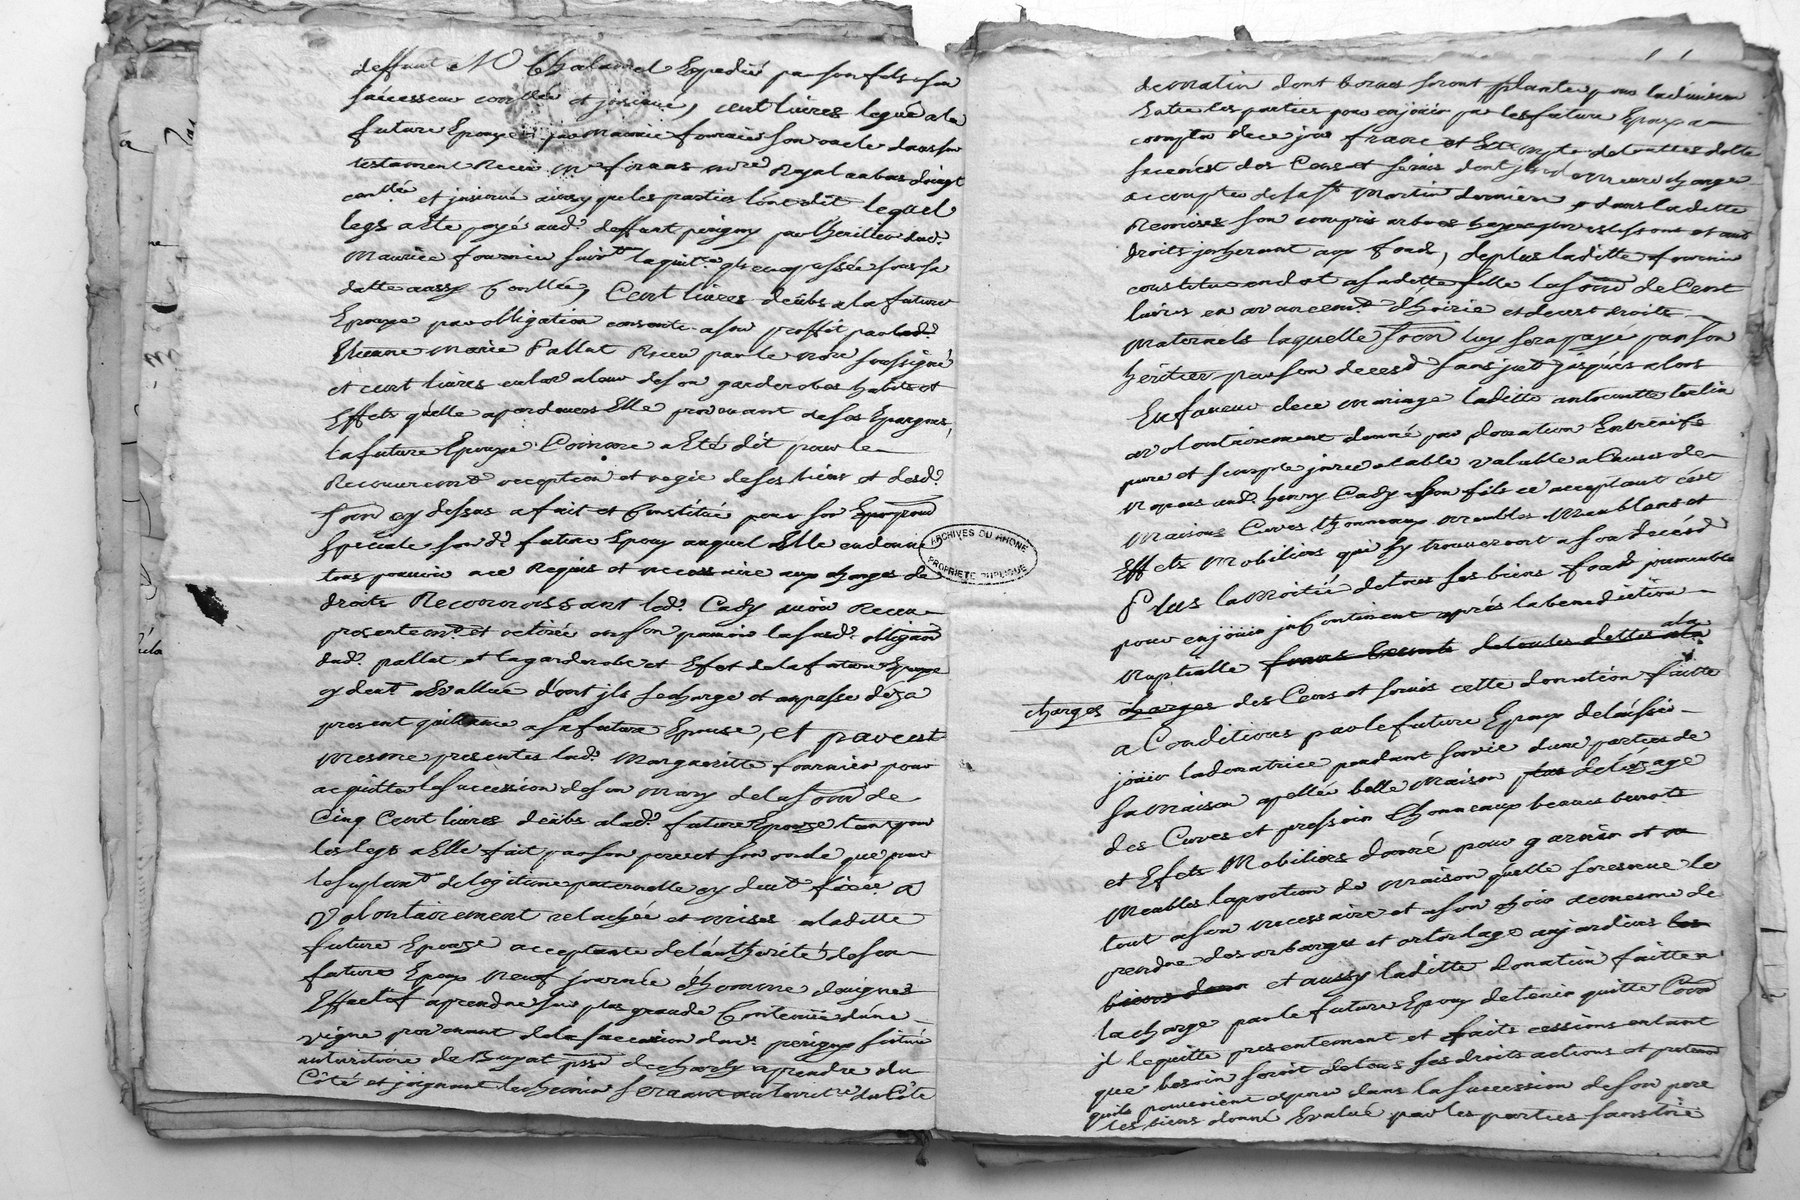 deffunt Me Chalandel Expedié par son fils et son
successeur conllé et insinué, cent livres legué a la
future Epouze par Maurice fournier son oncle dans son
testament Receu Me nore Royal
conllé et insinué ainsy que les parties l'ont dit lequel
legs a été payé aud. deffunt perigny par l'heritier dud.
Maurice fournier suivt la quitce passée sous sa
datte aussy Conllée, Cent livres deübs a la future
Epouze par obligation consentie a son proffit par lad.
Etienne Marie Pallat Receu par le nore soussigné
et cent livres en la valeur de son garderobes habits et
Effets qu'elle a pardevers Elle provenant de ses Epargnes,
La future Epouze Comme a Eté dit pour le
Recouvrement reception et regie de ses biens et desd.
cy dessus a fait et Constitué pour son
Speciale sond. futur Epoux auquel Elle en donne
tous pouvoir a ce Requis et necessaire aux charges de
droits Reconnoissant led. Cady avoir Receu
presentement et retirée en son pouvoir la susd. obligaon
dud. pallat et la garderobe et Effet de la future Epouze
cy devt Evallué dont il se charge et en passe deza
present quittance a sa future Epouse, et par cest
mesme presentes lad. Margueritte fournier pour
acquitter la succession de son mary de la de
Cinq Cent livres deübs a lad. future Epouze tant pour
les legs a Elle fait par son pere et son oncle que pour
le suplemt de legitime paternelle cy devt fixée a
volontairement relachée et mises a laditte
future Epouze acceptante de l'autherité de son
futur Epoux Neuf journée d'homme de vigne
Effectif a prendre sur plus grande Contenüe d'une
vigne provenant de la succession dud. perigny située
au territoire de Buyat psse de charly a prendre du
Côté et joignant le chemin servant au territre du Côté
de matin dont bornes seront plantée pour la division
Entre les parties pour en jouir par les future Epoux a
compter de ce jour franc et Exempte de touttes dette
fecenést des Cens et servis dont demeure chargé
a compter de la st Martin derniere, dans laditte
Remises son compris arbres et aut
droits jnherant aux fond, de plus laditte fournier
constitue en dot a saditte fille la de Cent
livres en avancemt d'hoirie et de cest droits
maternels laquelle luy sera payé par son
heritier par son decesd sans jnt jusqués alors
En faveur de ce mariage laditte antoinette
a volontairement donné par donation Entrevifs
pure et simple jrrevocable valable a Cause de
Nopces aud. henry Cady son fils ce acceptant c'est
Maisons Cuves thonneaux meubles Meublans et
Effets Mobiliers qui s'y trouveront a son decésd
Plus la moitié de tous ses biens fond jmmeuble
pour en jouir jncontinent aprés la benediction
Nuptialle de toutes dettes a la
charges charges des Cens et servis cette donation faitte
a Conditions par le future Epoux de laissé
jouir la donatrice pendant sa vie d'une parties de
sa maison apellée belle maison plus de l'uzage
des Cuves et pressoir thonneaux bennes
et Effets Mobiliers donné pour garnir et
Meubles la portion de maison qu'elle se reserve le
tout a son necessaire et a son choix a mesme de
prendre des arbarges et ortolage au jardins
et aussy laditte donation faitte a
la charge par le future Epoux de tenir quitte
jl le quitte presentement et faits cessions en tant
que besoin seroit de tous ses droits actions et
quils pouvoient avoir dans la succession de son pere
les biens donné Evalué par les parties sans
ARCHIVES DU RHÔNE
PROPRIÉTÉ PUBLIQUE